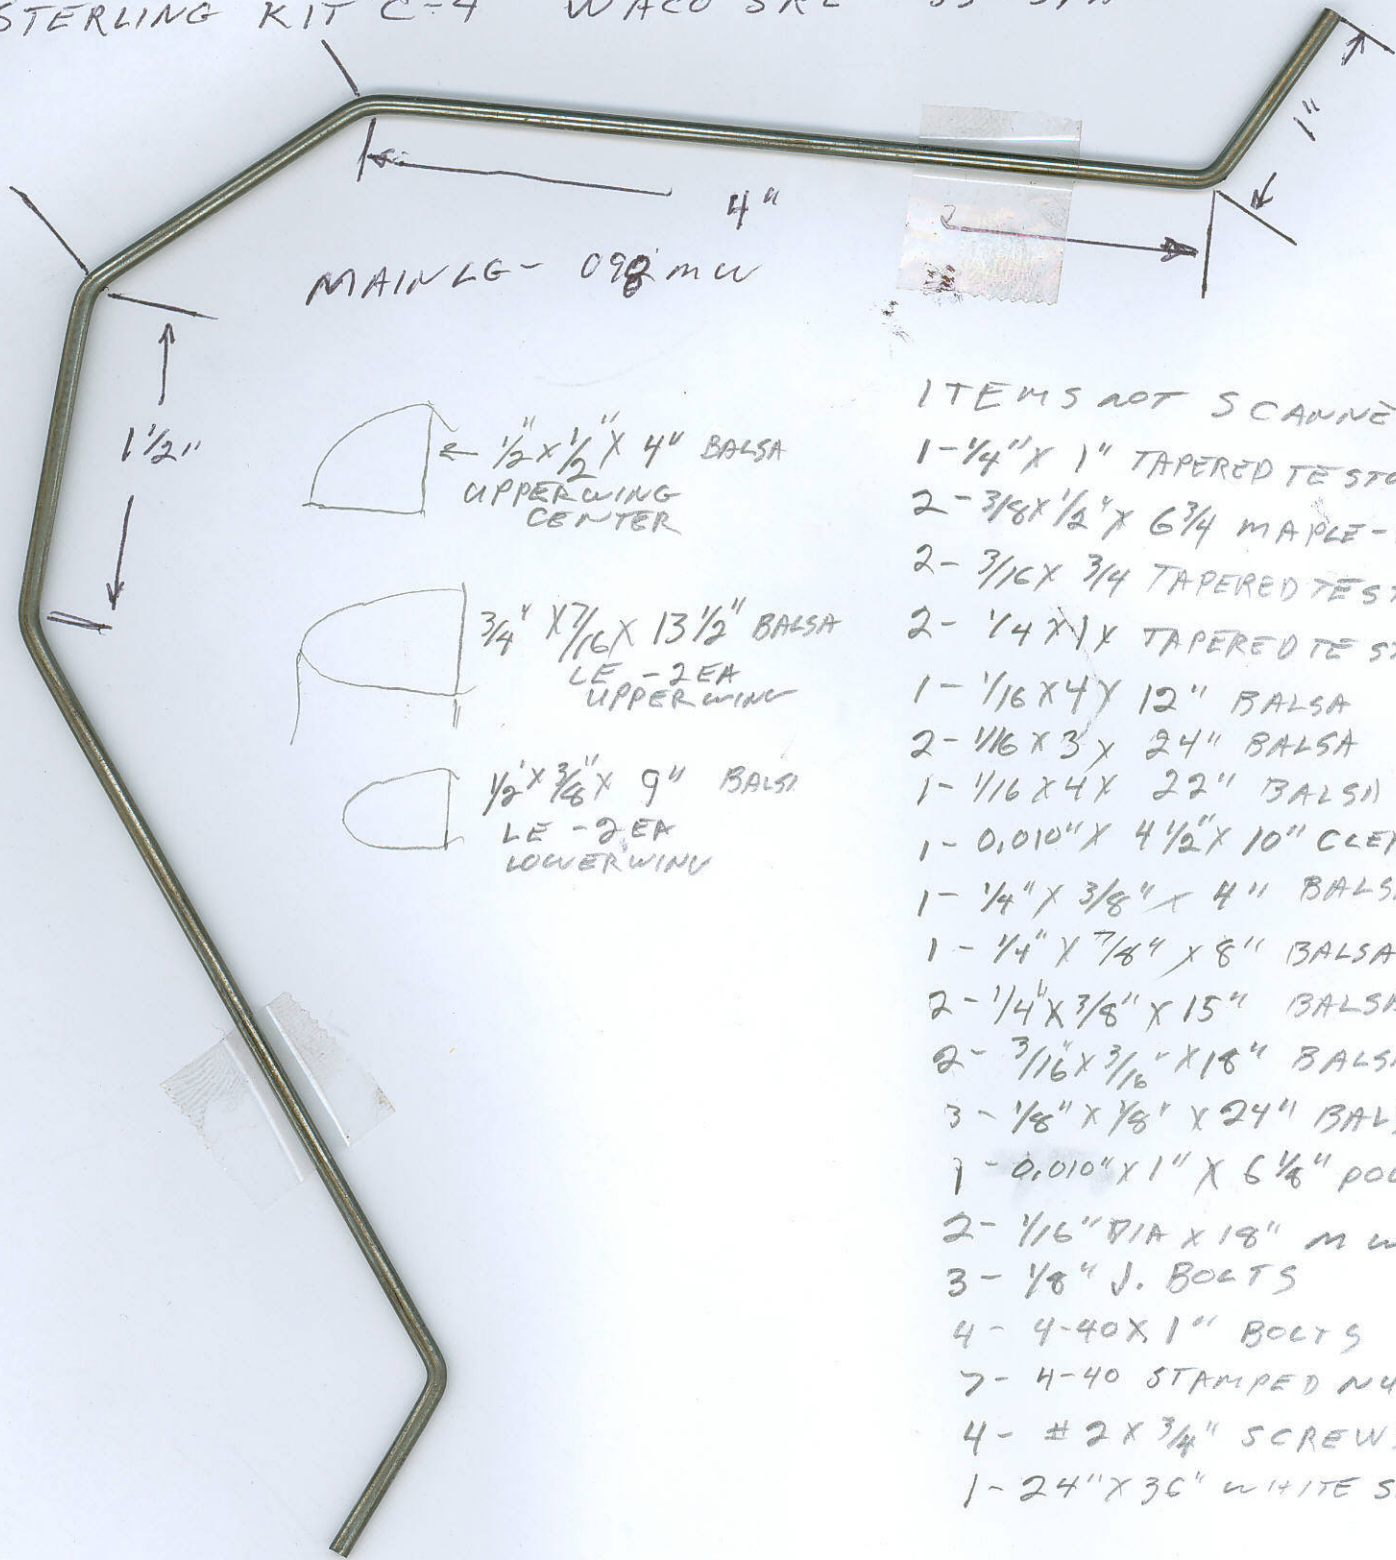 STERLING KIT C-4 WACO SRE
1"
4"
MAIN LG - 092 MW
1 1/2"
1/2" x 1/2" x 4" BALSA
UPPER WING
CENTER
3/4" x 7/16 x 13 1/2" BALSA
LE - 2 EA
UPPER WING
1/2" x 3/8" x 9" BALSA
LE - 2 EA
LOWER WING
ITEMS NOT SCANNE
1 - 1/4" x 1" TAPERED TE STO
2 - 3/8 x 1/2" x 6 3/4 MAPLE -
2 - 3/16 x 3/4 TAPERED TE ST
2 - 1/4 x 1 x TAPERED TE ST
1 - 1/16 x 4 x 12" BALSA
2 - 1/16 x 3 x 24" BALSA
1 - 1/16 x 4 x 22" BALSA
1 - 0.010" x 4 1/2 x 10" CLEA
1 - 1/4" x 3/8" x 4" BALSA
1 - 1/4" x 7/8" x 8" BALSA
2 - 1/4" x 3/8" x 15" BALSA
2 - 3/16 x 3/16" x 18" BALSA
3 - 1/8" x 1/8" x 24" BALS
1 - 0.010" x 1" x 6 1/8"
2 - 1/16" DIA x 18" MW
3 - 1/8" J. BOLTS
4 - 4-40 x 1" BOLTS
7 - 4-40 STAMPED NU
4 - #2 x 3/4" SCREWS
1 - 24" x 36" WHITE S